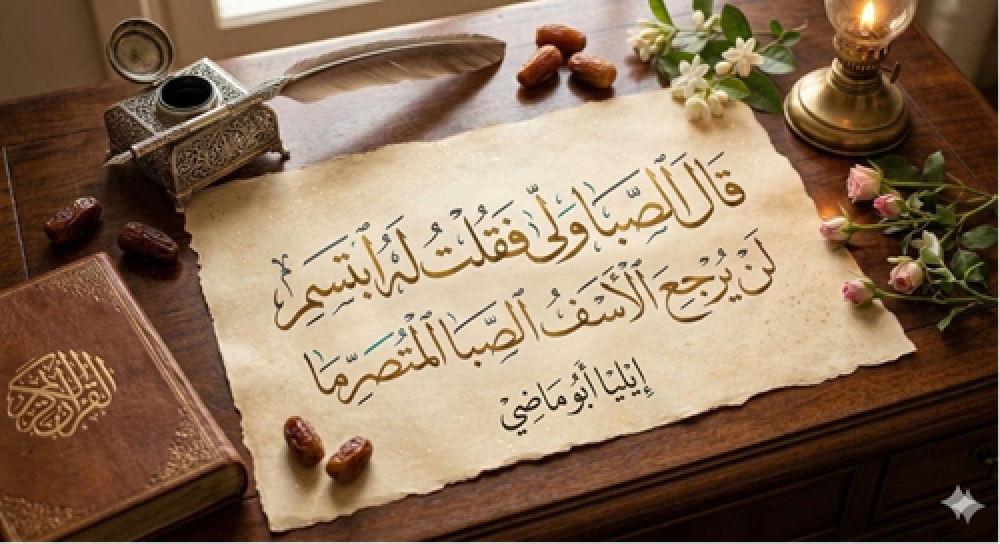 قَالَ الصِّبَا وَلَّى فَقُلْتُ لَهُ ابْتَسِمْ
لَنْ يُرْجِعَ الْأَسَفُ الصِّبَا الْمُتَصَرِّمَا
إِيْلِيَا أَبُو مَاضِيْ
القرآن الكريم